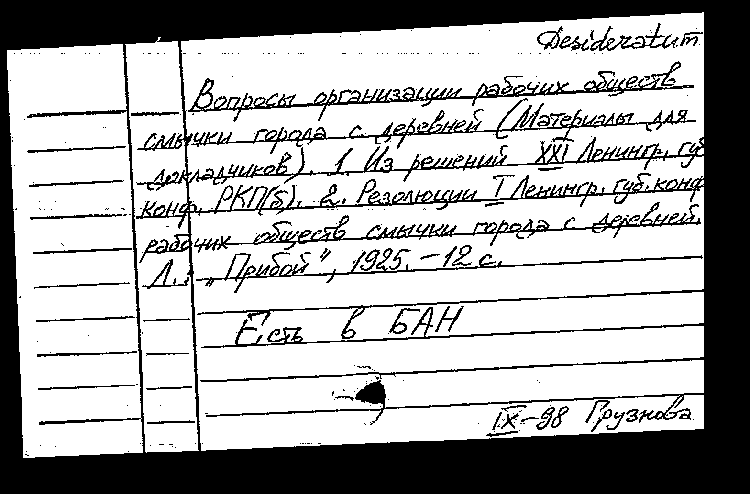 Desideratum
Вопросы организации рабочих обществ
смычки города с деревней (Материалы для
докладчиков). 1. Из решений XXI Ленингр. губ.
конф. РКП(б). 2. Резолюции I Ленингр. губ. конф.
рабочих обществ смычки города с деревней.
Л.: „Прибой", 1925. - 12 с.
Есть в БАН
IX-98 Грузнова